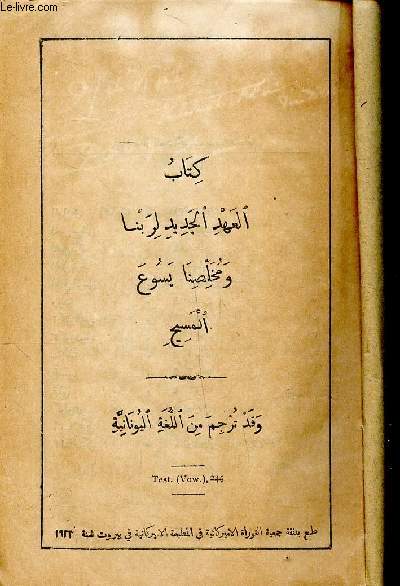 Le-Livre.com
كِتَابُ
ٱلْعَهْدِ ٱلْجَدِيدِ لِرَبِّنَا
وَمُخَلِّصِنَا يَسُوعَ
ٱلْمَسِيحِ
وَقَدْ تُرْجِمَ مِنَ ٱللُّغَةِ ٱلْيُونَانِيَّةِ
Test. (Vow.), 244
طبع بنفقة جمعية التوراة الاميركانية في المطبعة الاميركانية في بيروت سنة ١٩٢٢